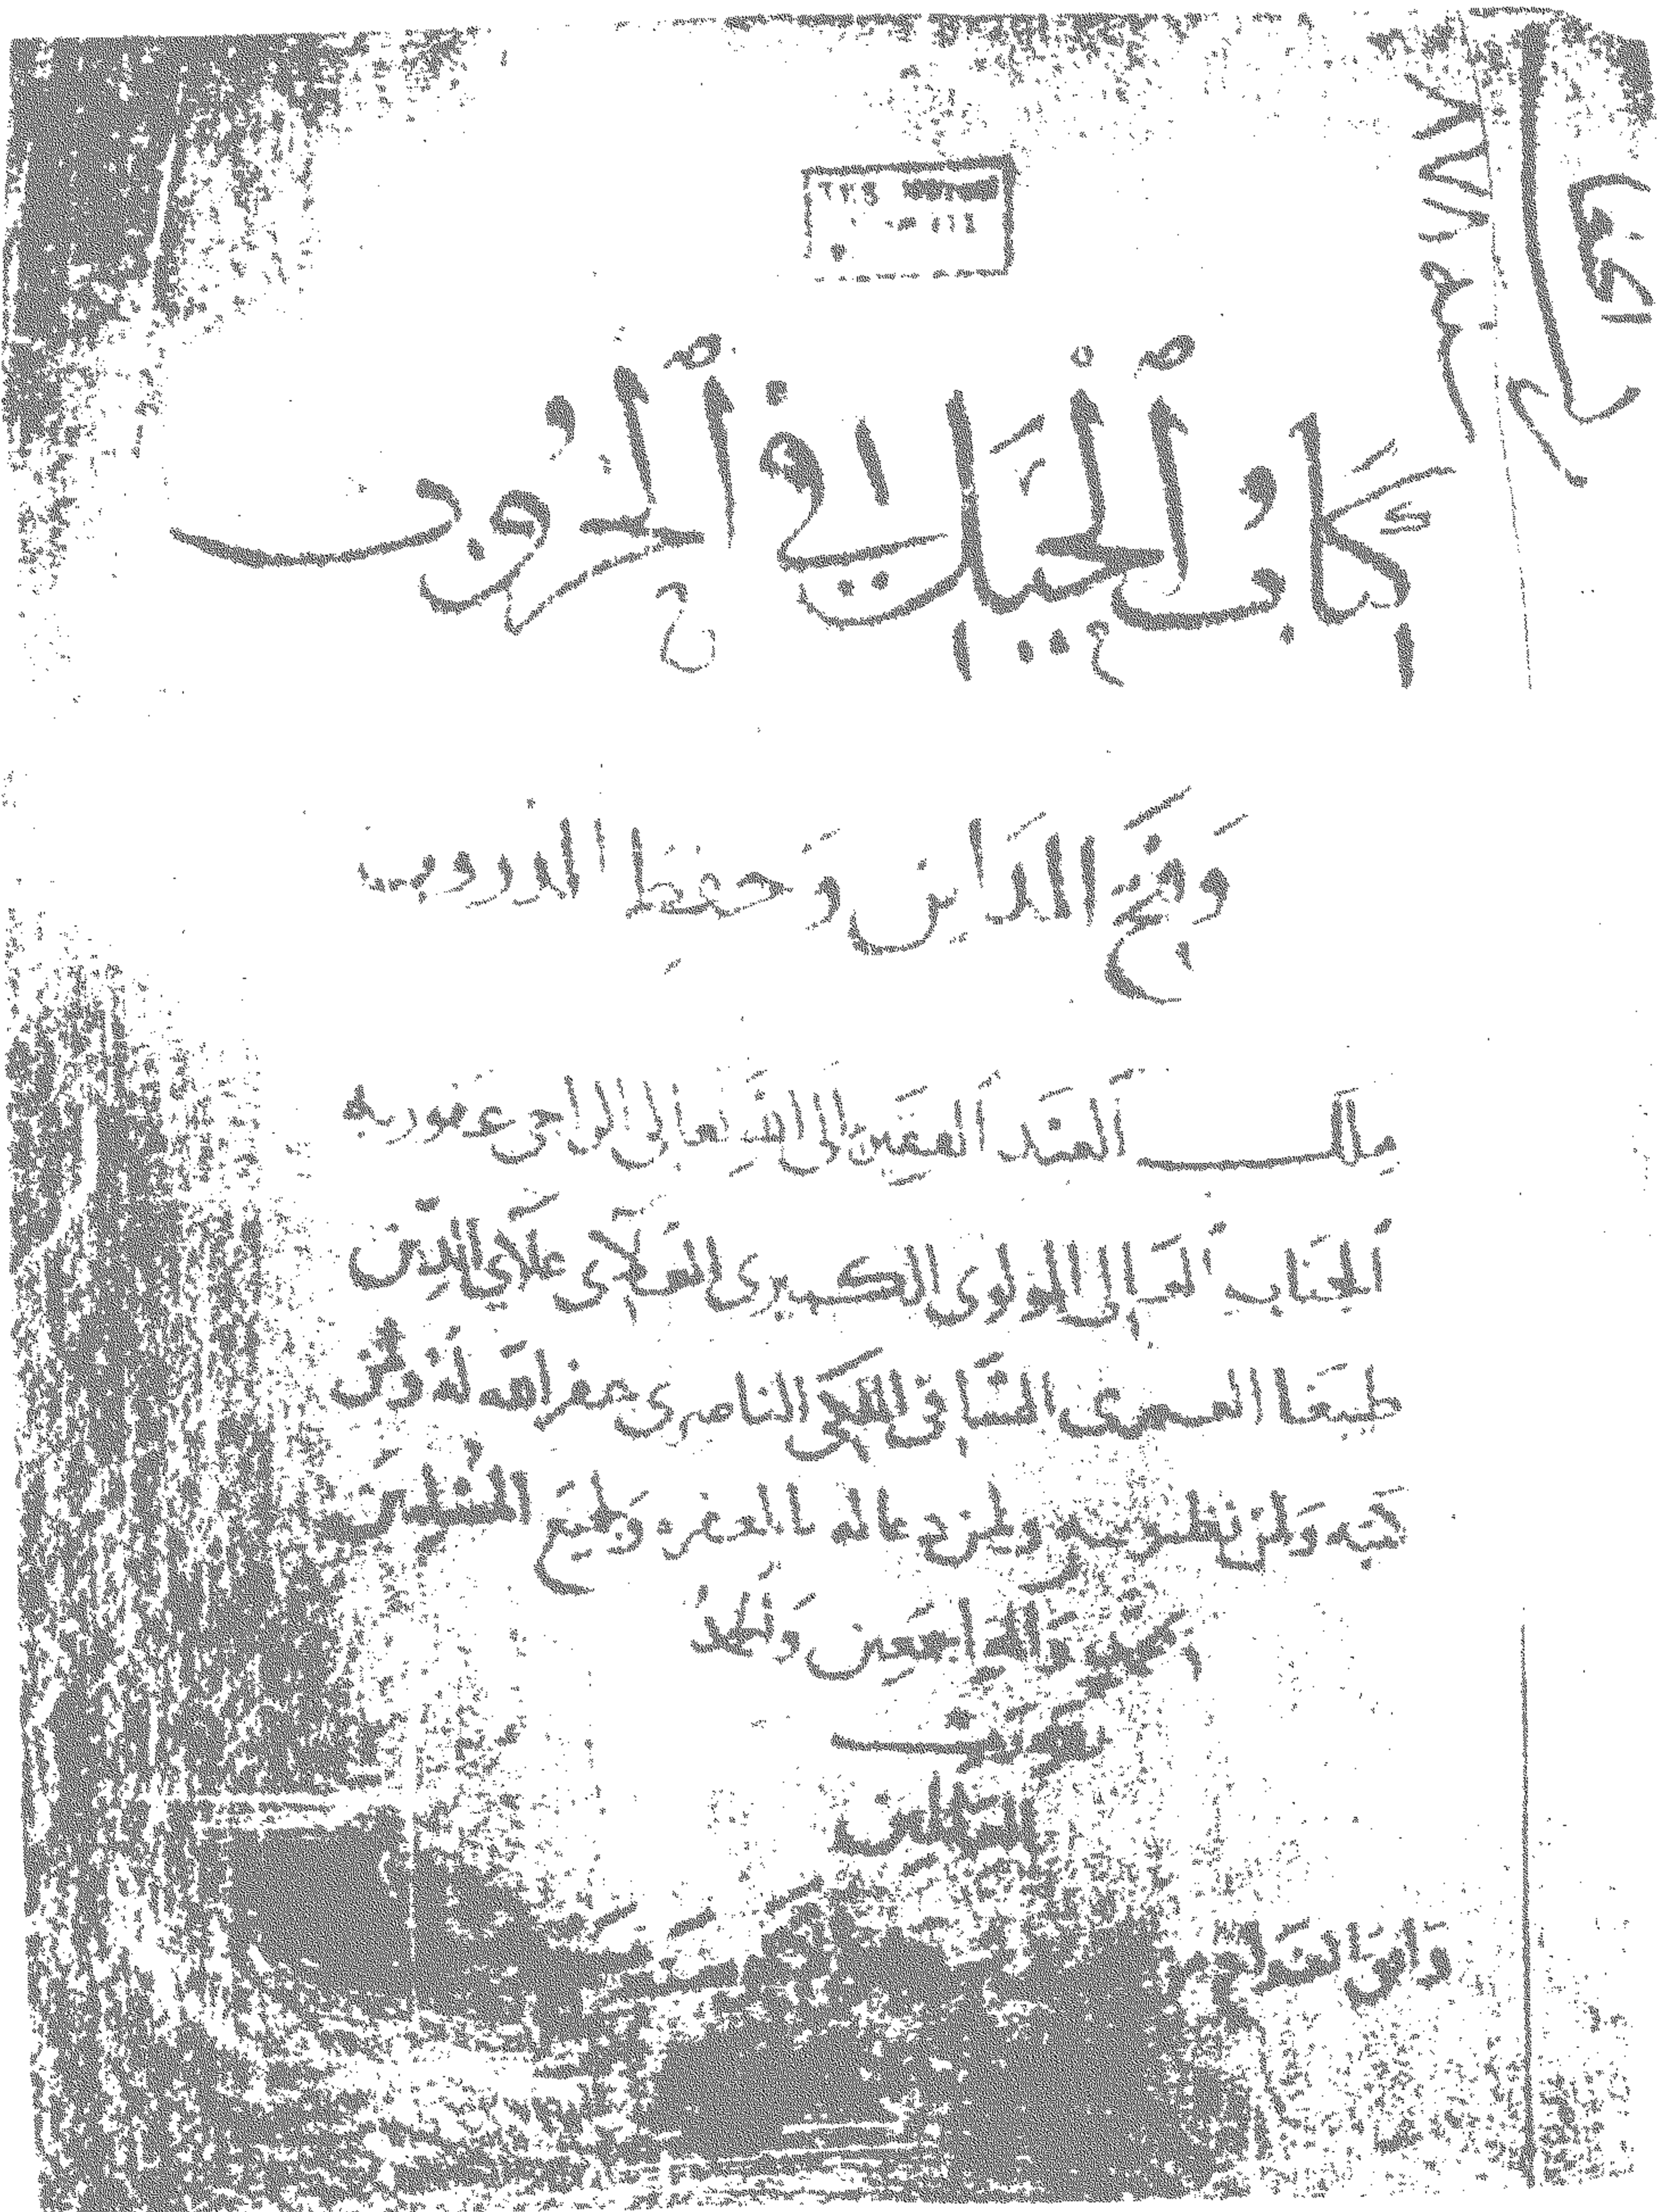 كتاب الحيل في الحروب
وفتح المداين وحفظ الدروب
ملك العبد الفقير الى الله تعالى الراجي عفو ربه
الجناب العالي المولوي الكبيري العلاي علاي الدين
طيبغا العمري الساقي الملكي الناصري غفر الله له ولمن
كتبه ولمن نظر فيه ولمن دعا له بالمغفره ولجميع المسلمين
محمد واله اجمعين والحمد
لله رب
العالمين